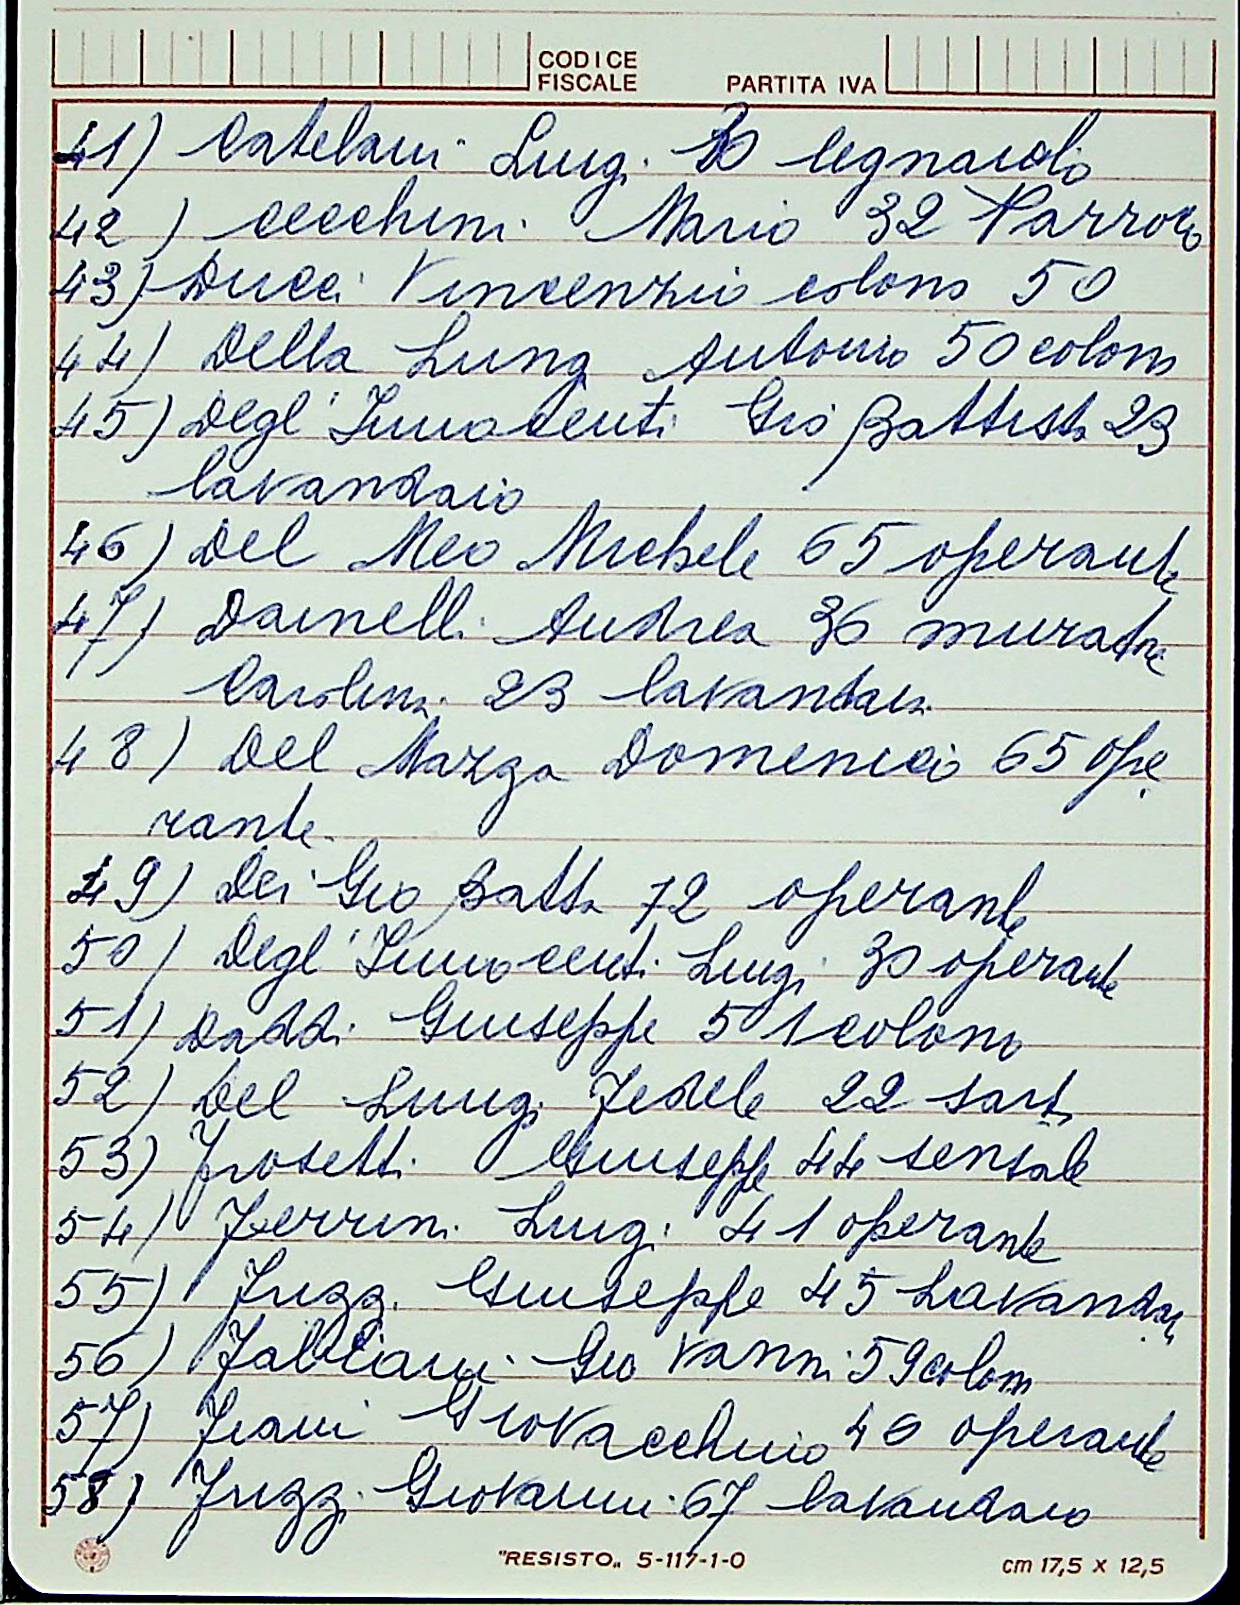 CODICE
FISCALE
PARTITA IVA
41) Catelani Luigi 30 legnaiolo
42) Cecchini Mario 32 Parroco
43) Ducci Vincenzio colono 50
44) Della Lung Antonio 50 colono
45) Degl'Innocenti Gio Battista 23
lavandaio
46) Del Meo Michele 65 operante
47) Dainelli Andrea 36 muratore
Carolina 23 lavandaia
48) Del Mazza Domenico 65 ope
rante
49) Dei Gio Batta 72 operante
50) Degl'Innocenti Luigi 30 operante
51) Daddi Giuseppe 51 colono
52) Del Lungi Fedele 22 sarto
53) Frosetti Giuseppe 44 sensale
54) Ferrini Luigi 41 operante
55) Frizzi Giuseppe 45 Lavandai
56) Fabbiani Gio Vanni 59 colono
57) Fiani Giovacchino 46 operante
58) Frizzi Giovanni 67 lavandaio
"RESISTO" 5-117-1-0
cm 17,5 x 12,5